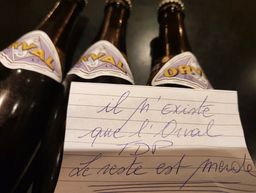 ORVAL
ORVAL
ORVAL
il n'existe
que l'Orval
TDP
Le reste est merde